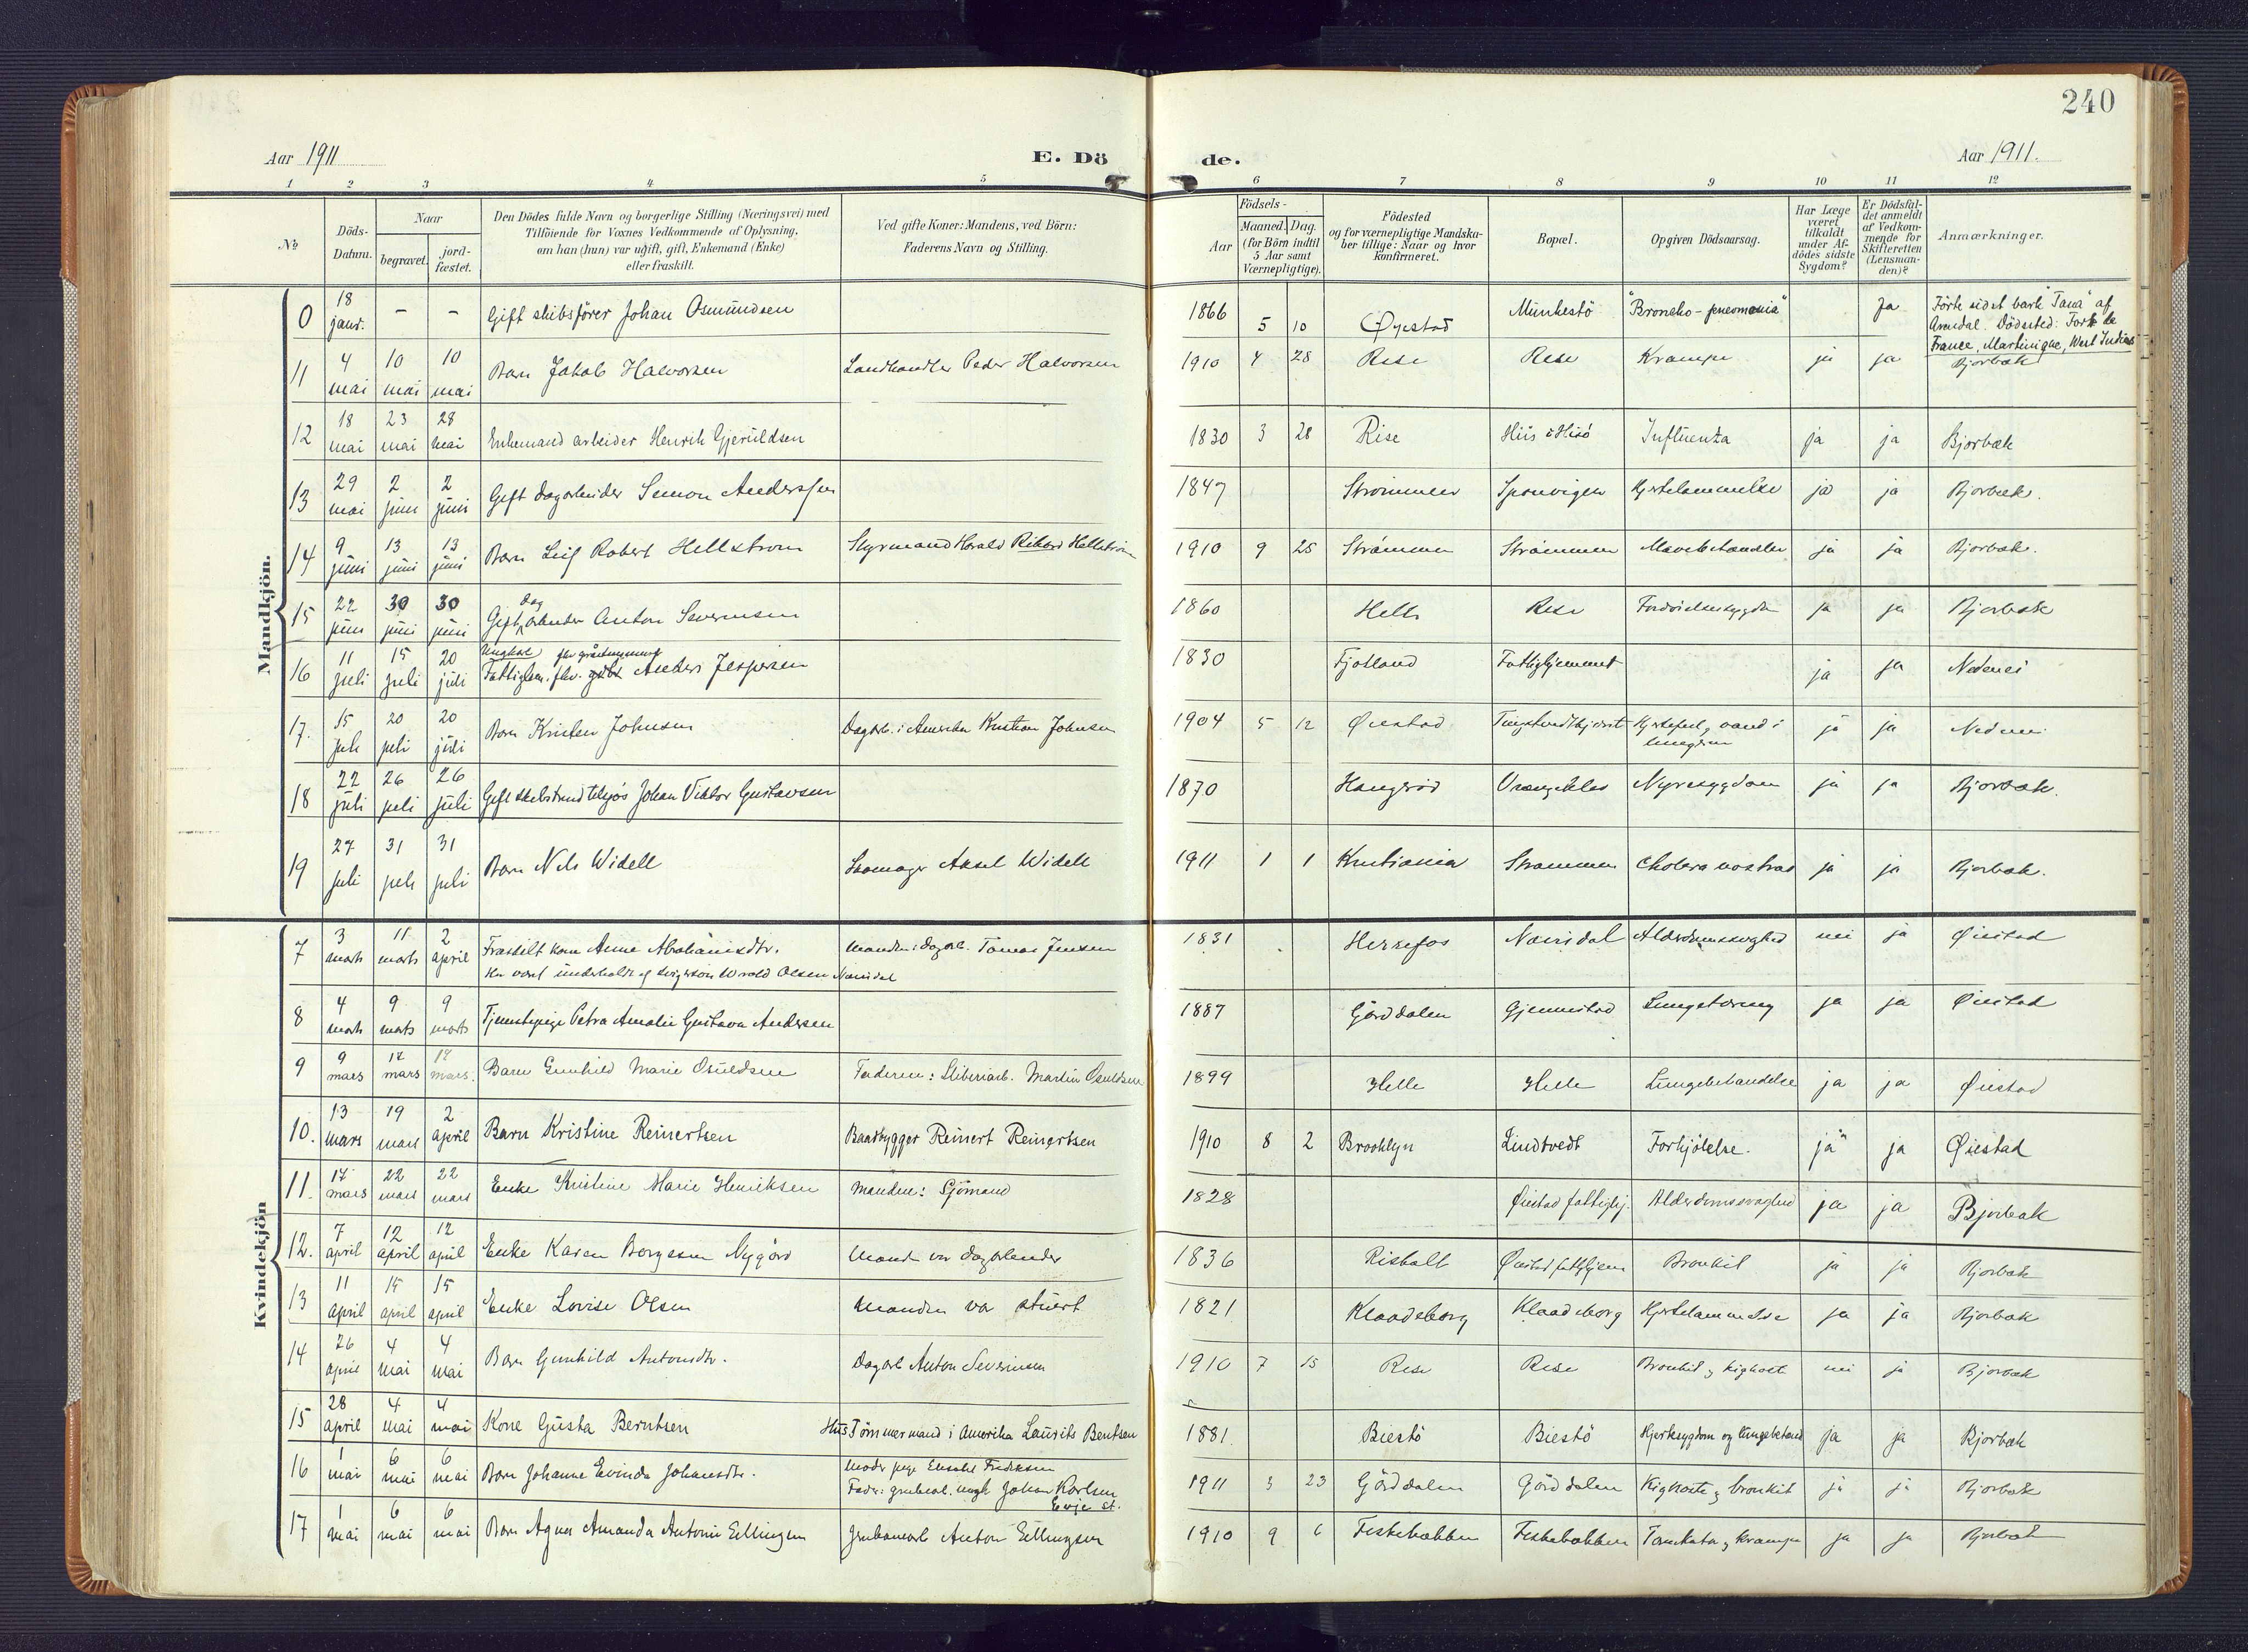 240
Aar 1911
E. Dö
de.
Aar 1911.
1 2 3 4 5 6 7 8 9 10 11 12
№
Döds-Datum.
Naar
begravet.
jord-fæstet.
Den Dödes fulde Navn og borgerlige Stilling (Næringsvei) med
Tilföiende for Voxnes Vedkommende af Oplysning,
om han (hun) var ugift, gift, Enkemand (Enke)
eller fraskilt.
Ved gifte Koner: Mandens, ved Börn:
Faderens Navn og Stilling.
Födsels-
Aar
Maaned. Dag.
(for Börn indtil
5 Aar samt
Værnepligtige).
Födested
og for værnepligtige Mandska-
ber tillige: Naar og hvor
konfirmeret.
Bopæl.
Opgiven Dödsaarsag.
Har Læge
været
tilkaldt
under Af-
dödes sidste
Sygdom?
Er Dödsfal-
det anmeldt
af Vedkom-
mende for
Skifteretten
(Lensman-
den)?
Anmærkninger.
Mandkjön.
0 18 janr. – – Gift skibsfører Johan Osmundsen 1866 5 10 Øyestad Munkestö "Broncko-pneomonia" Ja Førte sidst bark "Tana" af
Arendal. Dödssted: Fort de
France, Martinique, West Indies
11 4 mai 10 mai 10 mai Barn Jakob Halvorsen Landhandler Peder Halvorsen 1910 4 28 Rise Rise Krampe ja ja Bjorbæk
12 18 mai 23 mai 28 mai Enkemand arbeider Henrik Gjeruldsen 1830 3 28 Rise Hiis i Hisö Influenza ja ja Bjorbæk
13 29 mai 2 juni 2 juni Gift dagarbeider Simon Anderssen 1847 Strømmen Sponvigen Hjertelammelse ja ja Bjorbæk.
14 9 juni 13 juni 13 juni Barn Leif Robert Hellstrøm Styrmand Harald Rikard Hellström 1910 9 25 Strømmen Strømmen ja ja Bjorbæk.
15 22 juni 30 juni 30 juni Gift dagarbeider Anton Severinsen 1860 Helle Rise Fordøielsessygdom ja ja Bjorbæk
16 11 juli 15 juli 20 juli Ungkarl
Fattiglem. fhv. Anders Jespersen 1830 Fjotland Fattighjemmet ja ja Nedenes
17. 15 juli 20 juli 20 juli Barn Kristen Johnsen Dagarb. i Amerika Kristian Johnsen 1904 5 12 Øiestad Hjertefeil, vand i
lungerne ja ja Nedenes
18 22 juli 26 juli 26 juli Gift skibstømd tilsjøs Johan Viktor Gustavsen 1870 Vrengekleo Nyresygdom ja ja Bjorbæk.
19 27 juli 31 juli 31 juli Barn Nils Widell Skomager Aksel Widell 1911 1 1 Kristiania Strømmen Cholera nostras ja ja Bjorbæk.
Kvindekjön
7 3 marts 11 marts 2 april Fraskilt kone Anne Abrahamsdtr. Manden: dagarb. Tomas Jensen 1831 Herrefos Næsdal Alderdomssvaghed nei ja Øiestad
Har været underholdt af svigersøn Olsen
8 4 marts 9 marts 9 marts Tjenestepige Petra Amalie Gustava Andersen 1887 Gårddalen Gjennestad Lungetæring ja ja Øiestad
9 9 mars 17 mars 17 mars. Barn Gunhild Marie Osuldsen Faderen: Sliberiarb. Martin Osuldsen 1899 Helle Helle Lungebetændelse ja ja Øiestad
10. 13 mars 19 mars 2 april Barn Kristine Reinertsen Baadbygger Reinert Reinertsen 1910 8 2 Brooklyn Lindtvedt Forkjölelse. ja ja Øiestad
11. 17 mars 22 mars 22 mars Enke Kristine Marie Henriksen Manden: Sjömand 1828 Øiestad fattighj. Alderdomssvaghed ja ja Bjorbæk
12. 7 april 12 april 12 april Enke Karen Borgesen Nygård Mand var dagarbeider 1836 Risholt Øiestad fattighjem Bronkit ja ja Bjorbæk
13 11 april 15 april 15 april Enke Lovise Olsen Manden var stuert 1821 Klaadeborg Klaadeborg Hjertelammelse ja ja Bjorbæk
14 26 april 4 mai 4 mai Barn Gunhild Antonsdtr. Dagarb Anton Severinsen 1910 7 15 Rise Rise Bronkit og kighoste nei ja Bjorbæk
15 28 april 4 mai 4 mai Kone Gusta Berntsen Hus Tömmermand i Amerika Laurits Bentsen 1881. Biestö Biestö Hjertesygdom og lungebetænd ja ja Bjorbæk
16 1 mai 6 mai 6 mai Barn Johanne Evinda Johansdtr. Moder pige Fredriksen
Fader: grubearb. ungk Johan Karlsen
Evje st. 1911 3 23 Gårddalen Gårddalen Kighoste og bronkit ja ja Bjorbæk
17 1 mai 6 mai 6 mai Barn Agnes Amanda Antonie Ellingsen Grubearb Anton Ellingsen 1910 9 6 Fiskebækken Fiskebækken krampe ja ja Bjorbæk